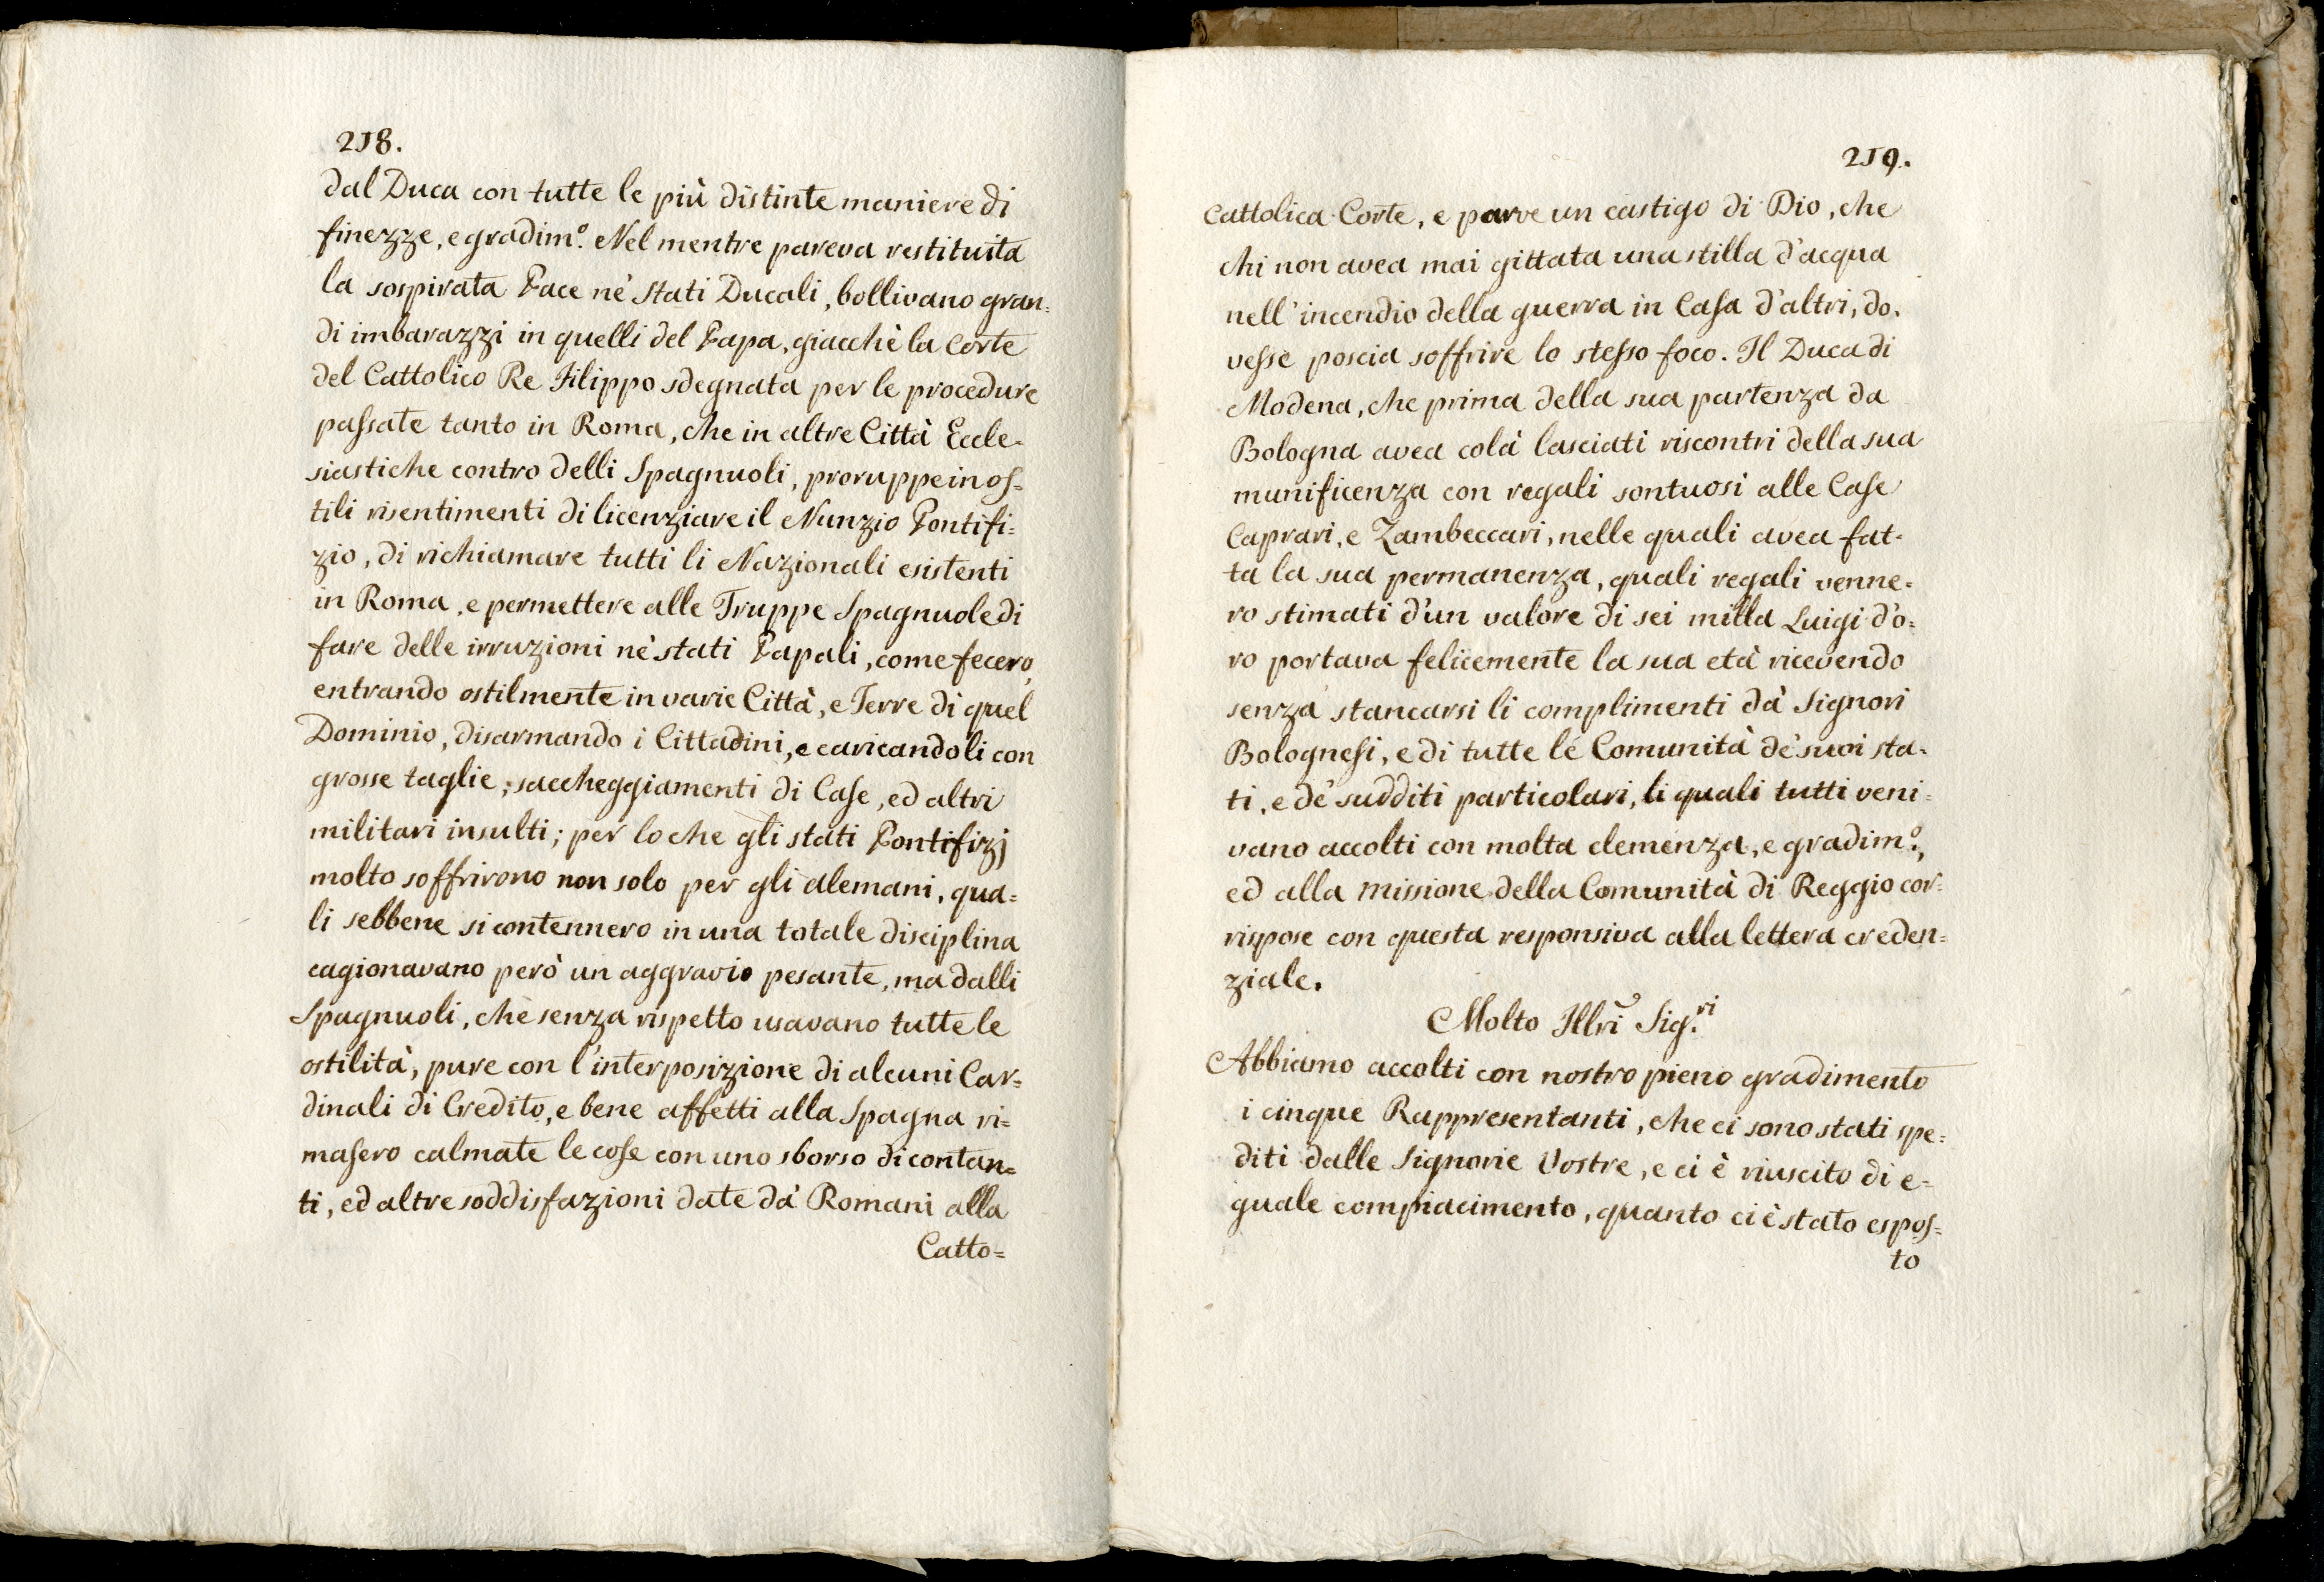 218.
dal Duca con tutte le più distinte maniere di
finezze, e gradim.º Nel mentre pareva restituita
la sospirata Pace ne' Stati Ducali, bollivano gran=
di imbarazzi in quelli del Papa, giacchè la Corte
del Cattolico Re Filippo sdegnata per le procedure
passate tanto in Roma, che in altre Città Eccle-
siastiche contro delli Spagnuoli, proruppe in os=
tili risentimenti di licenziare il Nunzio Pontifi=
zio, di richiamare tutti li Nazionali esistenti
in Roma, e permettere alle Truppe Spagnuole di
fare delle irruzioni ne' stati Papali, come fecero,
entrando ostilmente in varie Città, e Terre di quel
Dominio, disarmando i Cittadini, e caricandoli con
grosse taglie, saccheggiamenti di Case, ed altri
militari insulti; per lo che gli stati Pontifizj
molto soffrirono non solo per gli alemani, qua=
li sebbene si contennero in una totale disciplina
cagionavano però un aggravio pesante, ma dalli
Spagnuoli, che senza rispetto usavano tutte le
ostilità, pure con l'interposizione di alcuni Car=
dinali di Credito, e bene affetti alla Spagna ri=
masero calmate le cose con uno sborso di contan=
ti, ed altre soddisfazioni date da' Romani alla
Catto=
219.
Cattolica Corte, e parve un castigo di Dio, che
chi non avea mai gittata una stilla d'acqua
nell'incendio della guerra in Casa d'altri, do.
vesse poscia soffrire lo stesso foco. Il Duca di
Modena, che prima della sua partenza da
Bologna avea colà lasciati riscontri della sua
munificenza con regali sontuosi alle Case
Caprari, e Zambeccari, nelle quali avea fat-
ta la sua permanenza, quali regali venne=
ro stimati d'un valore di sei milla Luigi d'o=
ro portava felicemente la sua età ricevendo
senza stancarsi li complimenti da' Signori
Bolognesi, e di tutte le Comunità de' suoi sta-
ti, e de' sudditi particolari, li quali tutti veni=
vano accolti con molta clemenza, e gradim.º,
ed alla missione della Comunità di Reggio cor=
rispose con questa responsiva alla lettera creden=
ziale.
Molto Illri Sig.ri
Abbiamo accolti con nostro pieno gradimento
i cinque Rappresentanti, che ci sono stati spe=
diti dalle Signorie Vostre, e ci è riuscito di e=
guale compiacimento, quanto ci è stato espos=
to